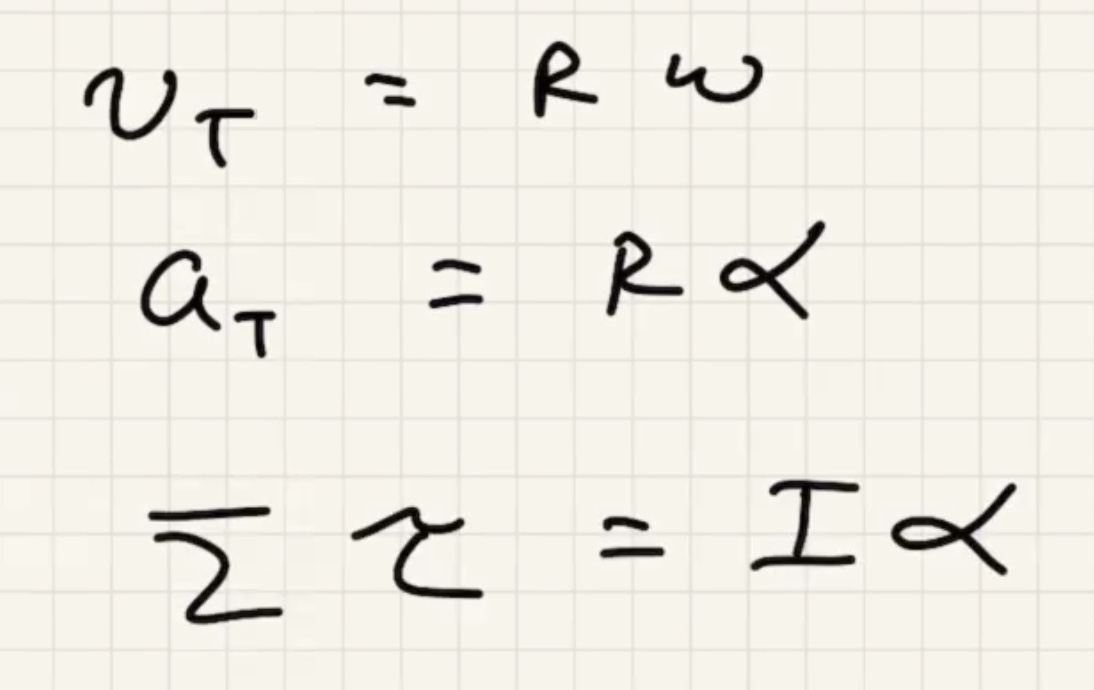 v_T = R ω
a_T = R α
Σ τ = I α